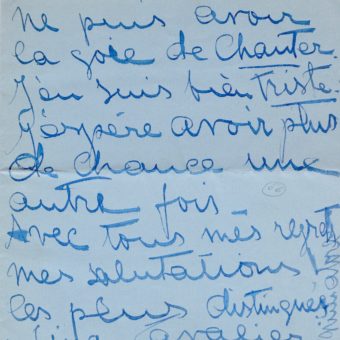 ne puis avoir
la joie de Chanter.
J'en suis bien triste.
J'espère avoir plus
de chance une
autre fois
Avec tous mes regrets
mes salutations
les plus distinguées
Cavalieri